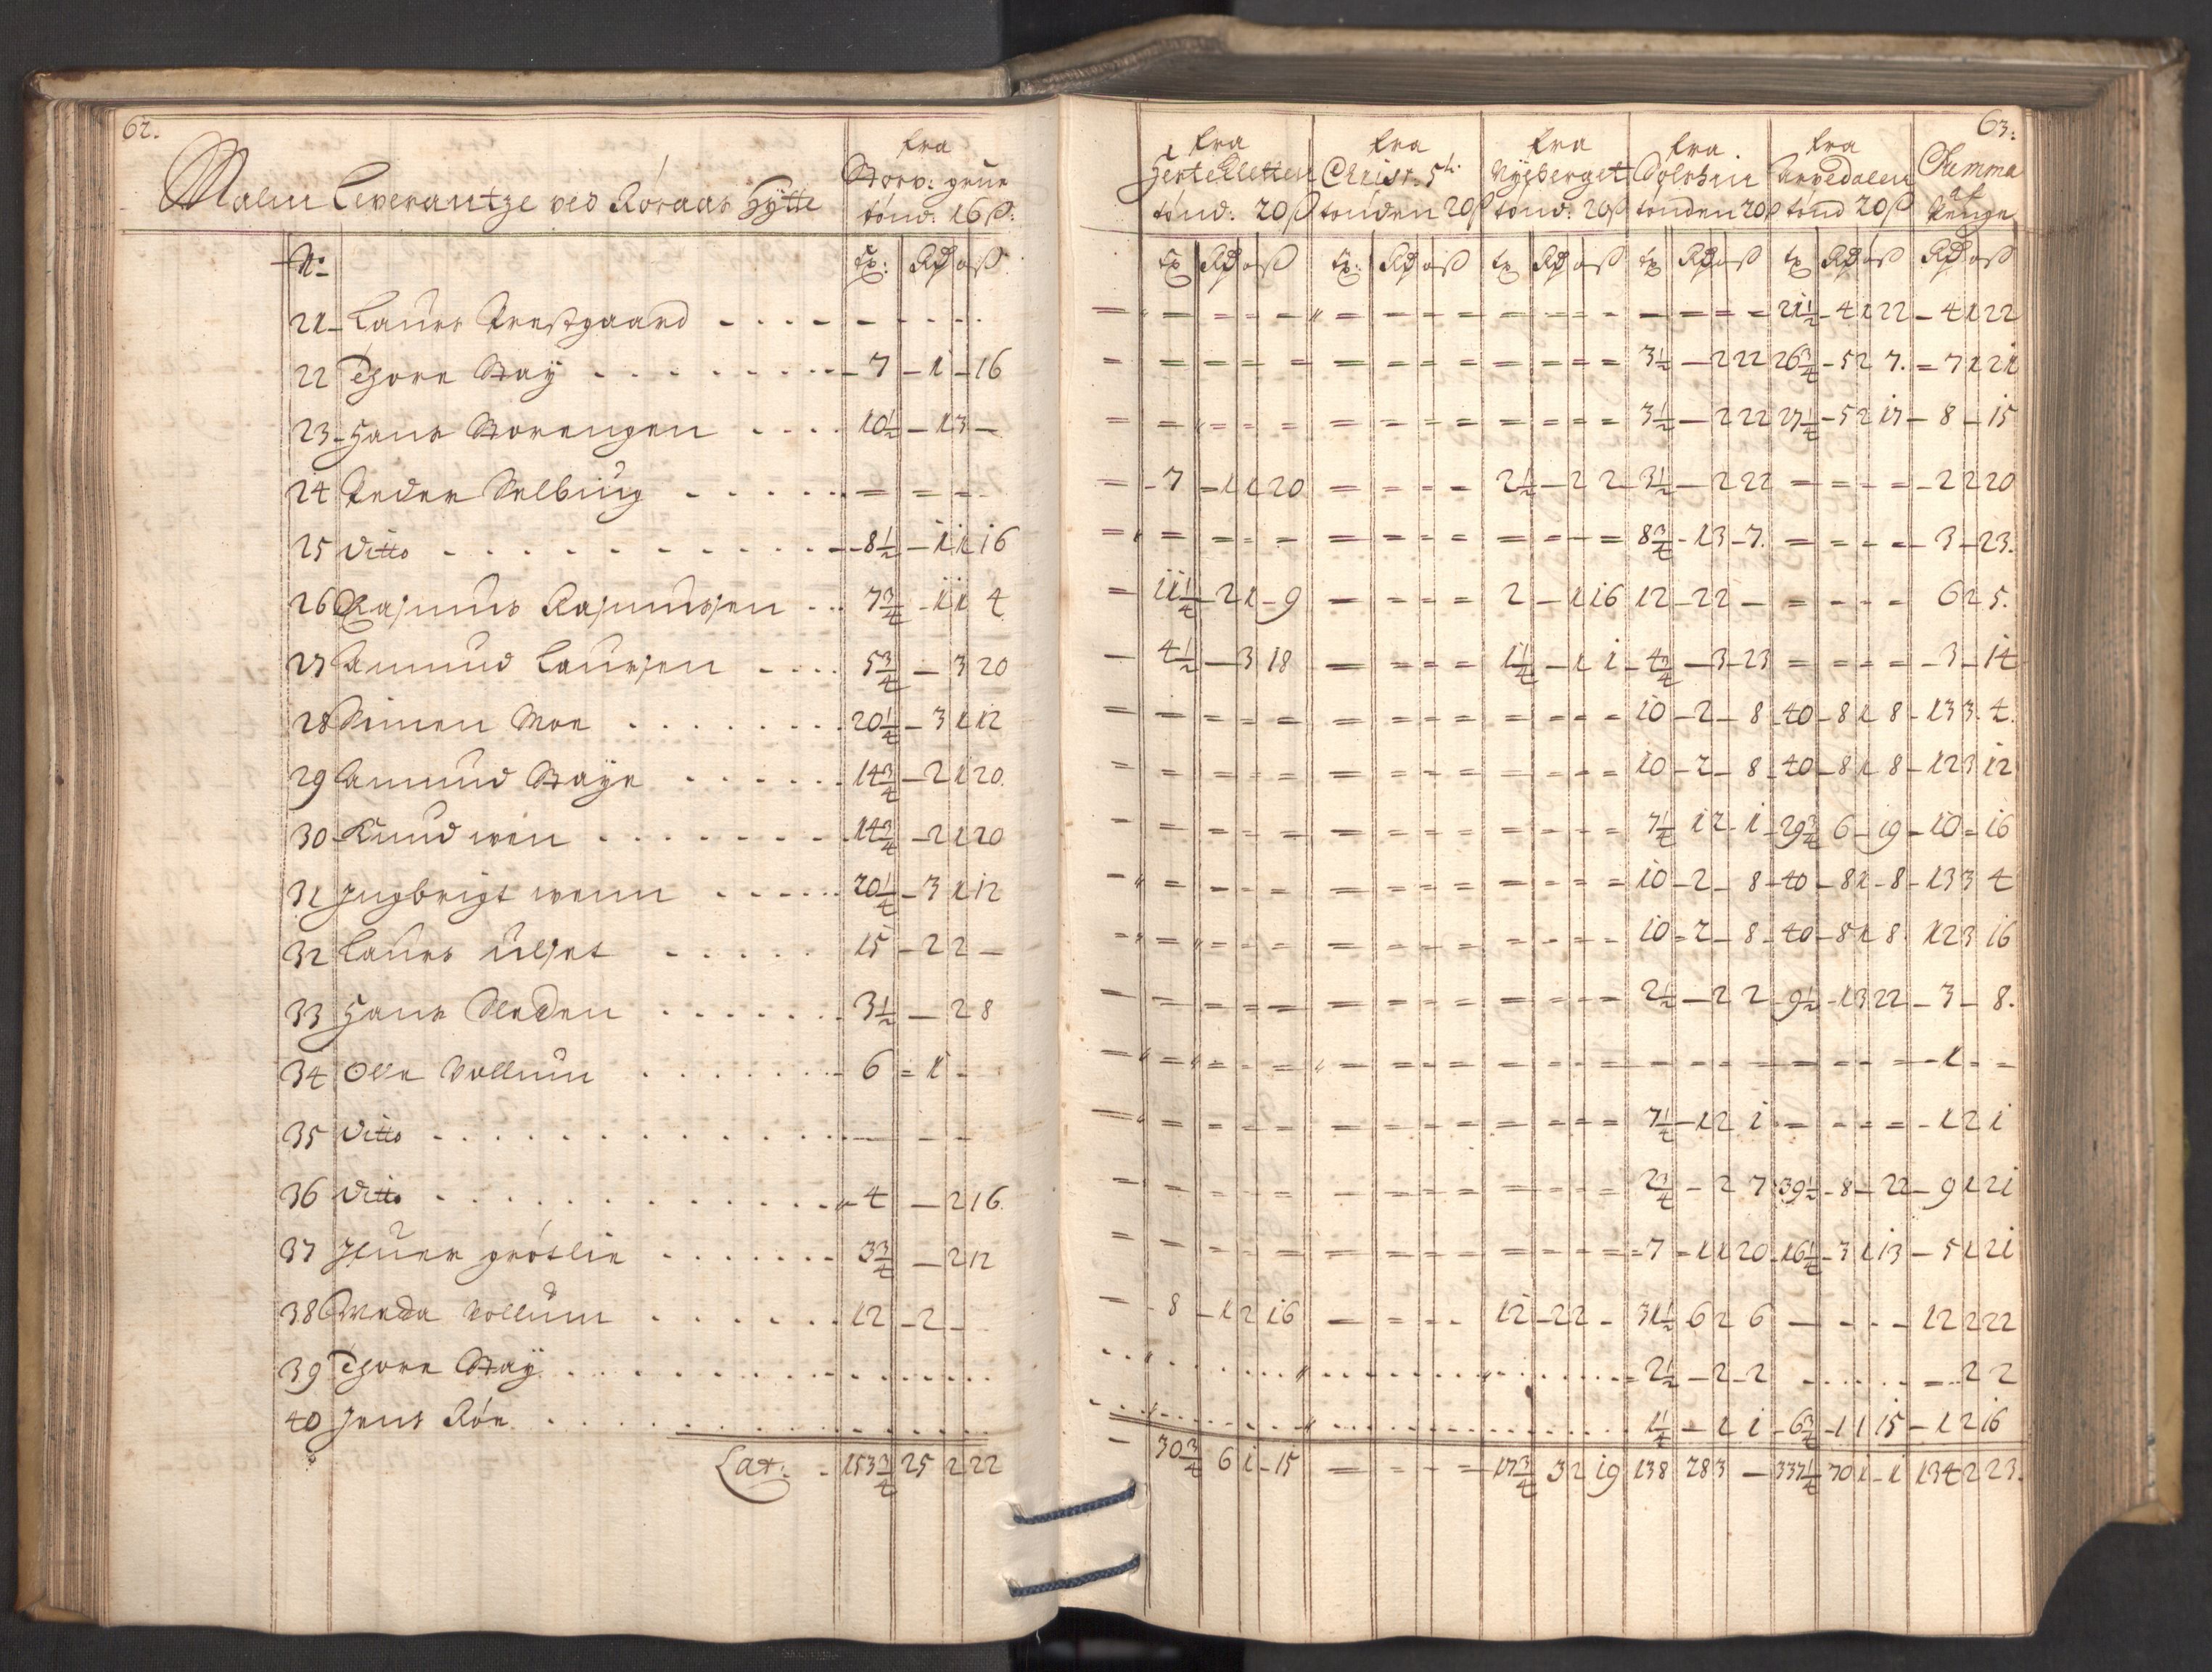 62.
Malm Leverantze ved Röraas Hÿtte
fra Storv: grue tönd: 16 ß:
N:o tr: Rdr o ß
21 Laurs Prestgaard - - - -
22 Thore Staÿ 7 - 1 - 16
23 Hans Storengen 10 1/2 - 1 3 -
24 Peder Selbiug - - - -
25 Ditto 8 1/2 - 1 1 16
26 Rasmus Rasmussen 7 3/4 - 1 1 4
27 Amund Laursen 5 3/4 - 3 20
28 Simen Moe 20 1/4 - 3 1 12
29 Amund Staÿe 14 3/4 - 2 1 20
30 Knud wen 14 3/4 - 2 1 20
31 Ingbrigt wenn 20 1/4 - 3 1 12
32 Laurs Ulset 15 - 2 2 -
33 Hans Sleden 3 1/2 - 2 8
34 Olle Vollum 6 - 1 -
35 Ditto - - -
36 Ditto 4 - 2 16
37 Ifuer grötlie 3 3/4 - 2 12
38 Vollum 12 - 2 -
39 Thore Staÿ
40 Jens Röe
Lat: 153 3/4 25 2 22
63:
fra HesteKletten tönd: 20 ß fra Christ: 5ti tönden 20 ß fra Nÿeberget tönd: 20 ß fra Solskin tönden 20 ß fra Arvedalen tönd 20 ß Summa af Penge
tr Rdr o ß tr: Rdr o ß tr Rdr o ß tr Rdr o ß tr Rdr o ß Rdr o ß
21 1/2 - 4 1 22 - 4 1 22
3 1/2 - 2 22 26 3/4 - 5 2 7. - 7 1 21
3 1/2 - 2 22 27 1/4 - 5 2 17 - 8 - 15
7 - 1 1 20 2 1/2 - 2 2 - 3 1/2 - 2 22 - 2 2 20
8 3/4 - 1 3 - 7. - 3 - 23.
11 1/4 - 2 1 - 9 2 - 1 16 12 - 2 2 - 6 2 5.
4 1/2 - 3 18 1 1/4 - 1 1 - 4 3/4 - 3 - 23 - 3 - 14
10 - 2 - 8 - 40 - 8 1 8 - 13 3 4.
10 - 2 - 8 - 40 - 8 1 8 - 12 3 12
7 1/4 1 2 - 1 - 29 3/4 6 - 19 - 10 - 16
10 - 2 - 8 - 40 - 8 1 - 8 - 13 3 4
10 - 2 - 8 - 40 - 8 1 8 12 3 16
2 1/2 - 2 2 - 9 1/2 - 1 3 22 - 3 - 8.
- 1 - -
7 1/4 - 1 2 1 - 1 2 1
2 3/4 - 2 7 39 1/2 - 8 - 22 - 9 1 21
7 - 1 1 20 - 16 1/4 - 3 1 13 - 5 1 21
8 - 1 2 16 12 - 2 2 - 31 1/2 6 2 6 12 2 22
2 1/2 - 2 - 2 - 2 2
1 1/4 - 1 1 - 6 3/4 - 1 1 15 - 1 2 16
30 3/4 6 1 - 15 17 3/4 3 2 19 138 28 3 - 337 1/4 70 1 - 1 134 2 23.